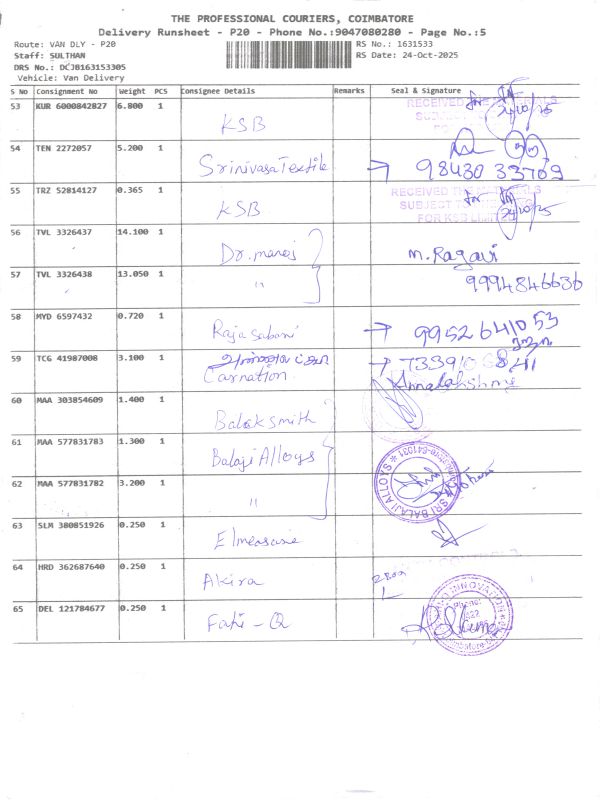 THE PROFESSIONAL COURIERS, COIMBATORE
Delivery Runsheet - P20 - Phone No.:9047080280 - Page No.:5
Route: VAN DLY - P20
RS No.: 1631533
Staff: SULTHAN
RS Date: 24-Oct-2025
DRS No.: DCJB163153305
Vehicle: Van Delivery
S No Consignment No Weight PCS Consignee Details Remarks Seal & Signature
53 KUR 6000842827 6.800 1
KSB
RECEIVED THE MATERIALS
54 TEN 2272057 5.200 1
Srinivasa Textile → 98430 33769
55 TRZ 52814127 0.365 1
KSB
RECEIVED THE MATERIALS
SUBJECT TO
FOR KSB LIMITED
56 TVL 3326437 14.100 1
Dr. manoj
M. Ragavi
57 TVL 3326438 13.050 1
"
9994846636
58 MYD 6597432 0.720 1
Raja sabari → 99526 41053
59 TCG 41987008 3.100 1
Carnation
Annalakshmi
60 MAA 303854609 1.400 1
Balaksmith
61 MAA 577831783 1.300 1
Balaji Alloys
SRI BALAJI ALLOYS
62 MAA 577831782 3.200 1
"
63 SLM 380851926 0.250 1
Elmeasure
64 HRD 362687640 0.250 1
Akira
65 DEL 121784677 0.250 1
Fahi - Q
INNOVATION
Phone: